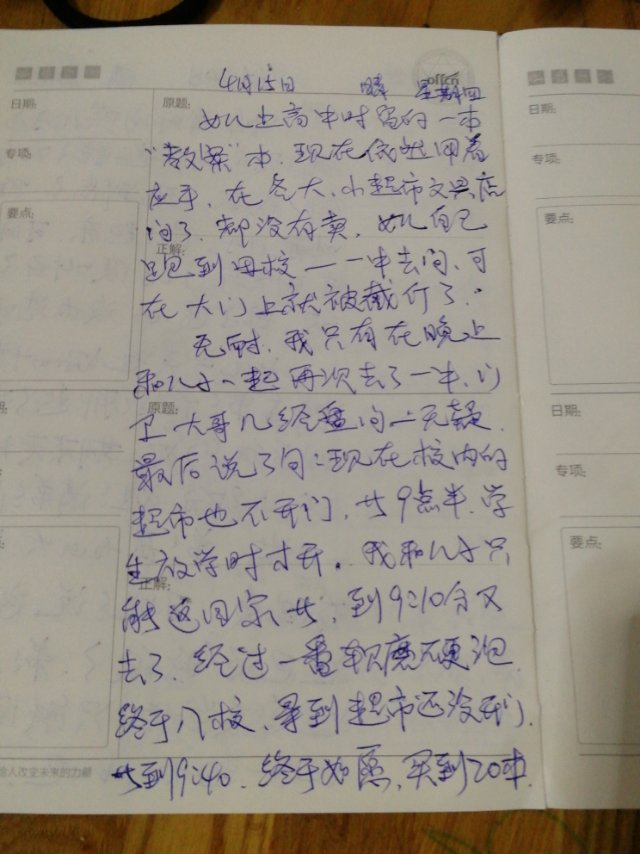 offcn
4月15日 晴 星期四
日期:
原题:
日期:
女儿上高中时写的一本
专项:
“教案”本，现在依然用着
专项:
应手，在各大、小超市文具店
要点:
要点:
问了，却没有卖，女儿自己
正解:
跑到母校——一中去问，可
在大门上就被截住了。
无耐，我只有在晚上
和儿子一起再次去了一中，门
原题:
日期:
卫大哥几经盘问一无疑，
最后说了句：现在校内的
专项:
超市也不开门，等9点半，学
要点:
生放学时才开。我和儿子只
正解:
能返回家等，到9:10分又
去了，经过一番软磨硬泡，
终于入校，寻到超市还没开门，
给人改变未来的力量
等到9:40，终于如愿，买到20本，